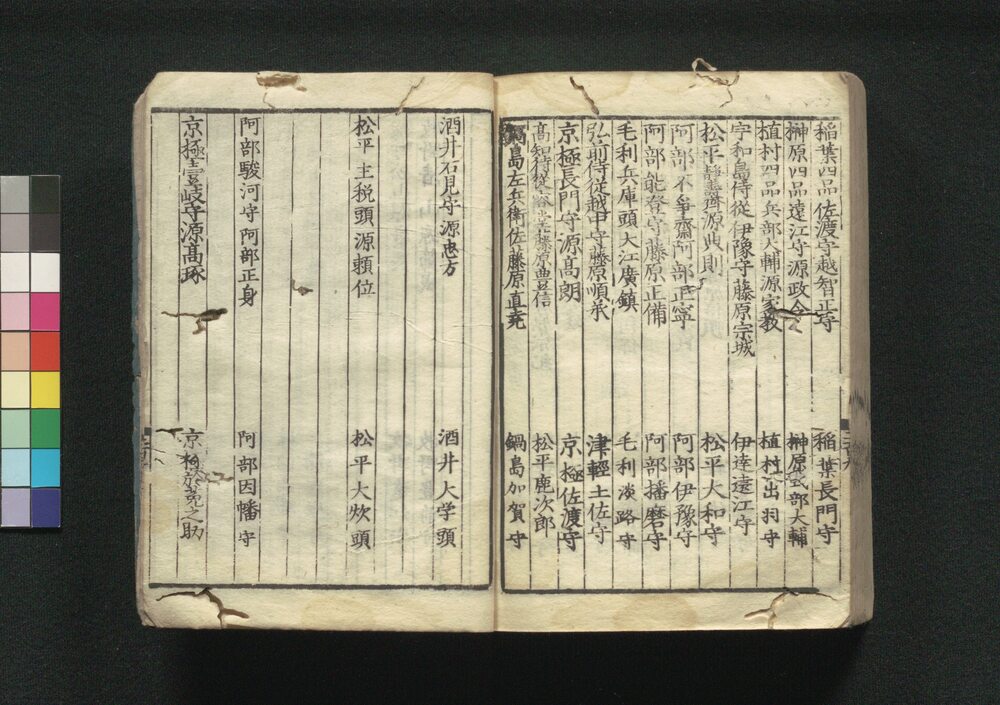 稲葉四品佐渡守越智正守 稲葉長門守
榊原四品遠江守源政令 榊原式部大輔
植村四品兵部大輔源家教 植村出羽守
宇和島侍従伊豫守藤原宗城 伊達遠江守
松平静壽齋源典則 松平大和守
阿部不爭齋阿部正寧 阿部伊豫守
阿部能登守藤原正備 阿部播磨守
毛利兵庫頭大江廣鎮 毛利淡路守
弘前侍従越中守藤原順承 津輕土佐守
京極長門守源高朗 京極佐渡守
高知侍従容堂藤原豊信 松平鹿次郎
鍋島左兵衛佐藤原直尭 鍋島加賀守
酒井石見守源忠方 酒井大学頭
松平主税頭源頼位 松平大炊頭
阿部駿河守阿部正身 阿部因幡守
京極壹岐守源髙琢 京極於莬之助